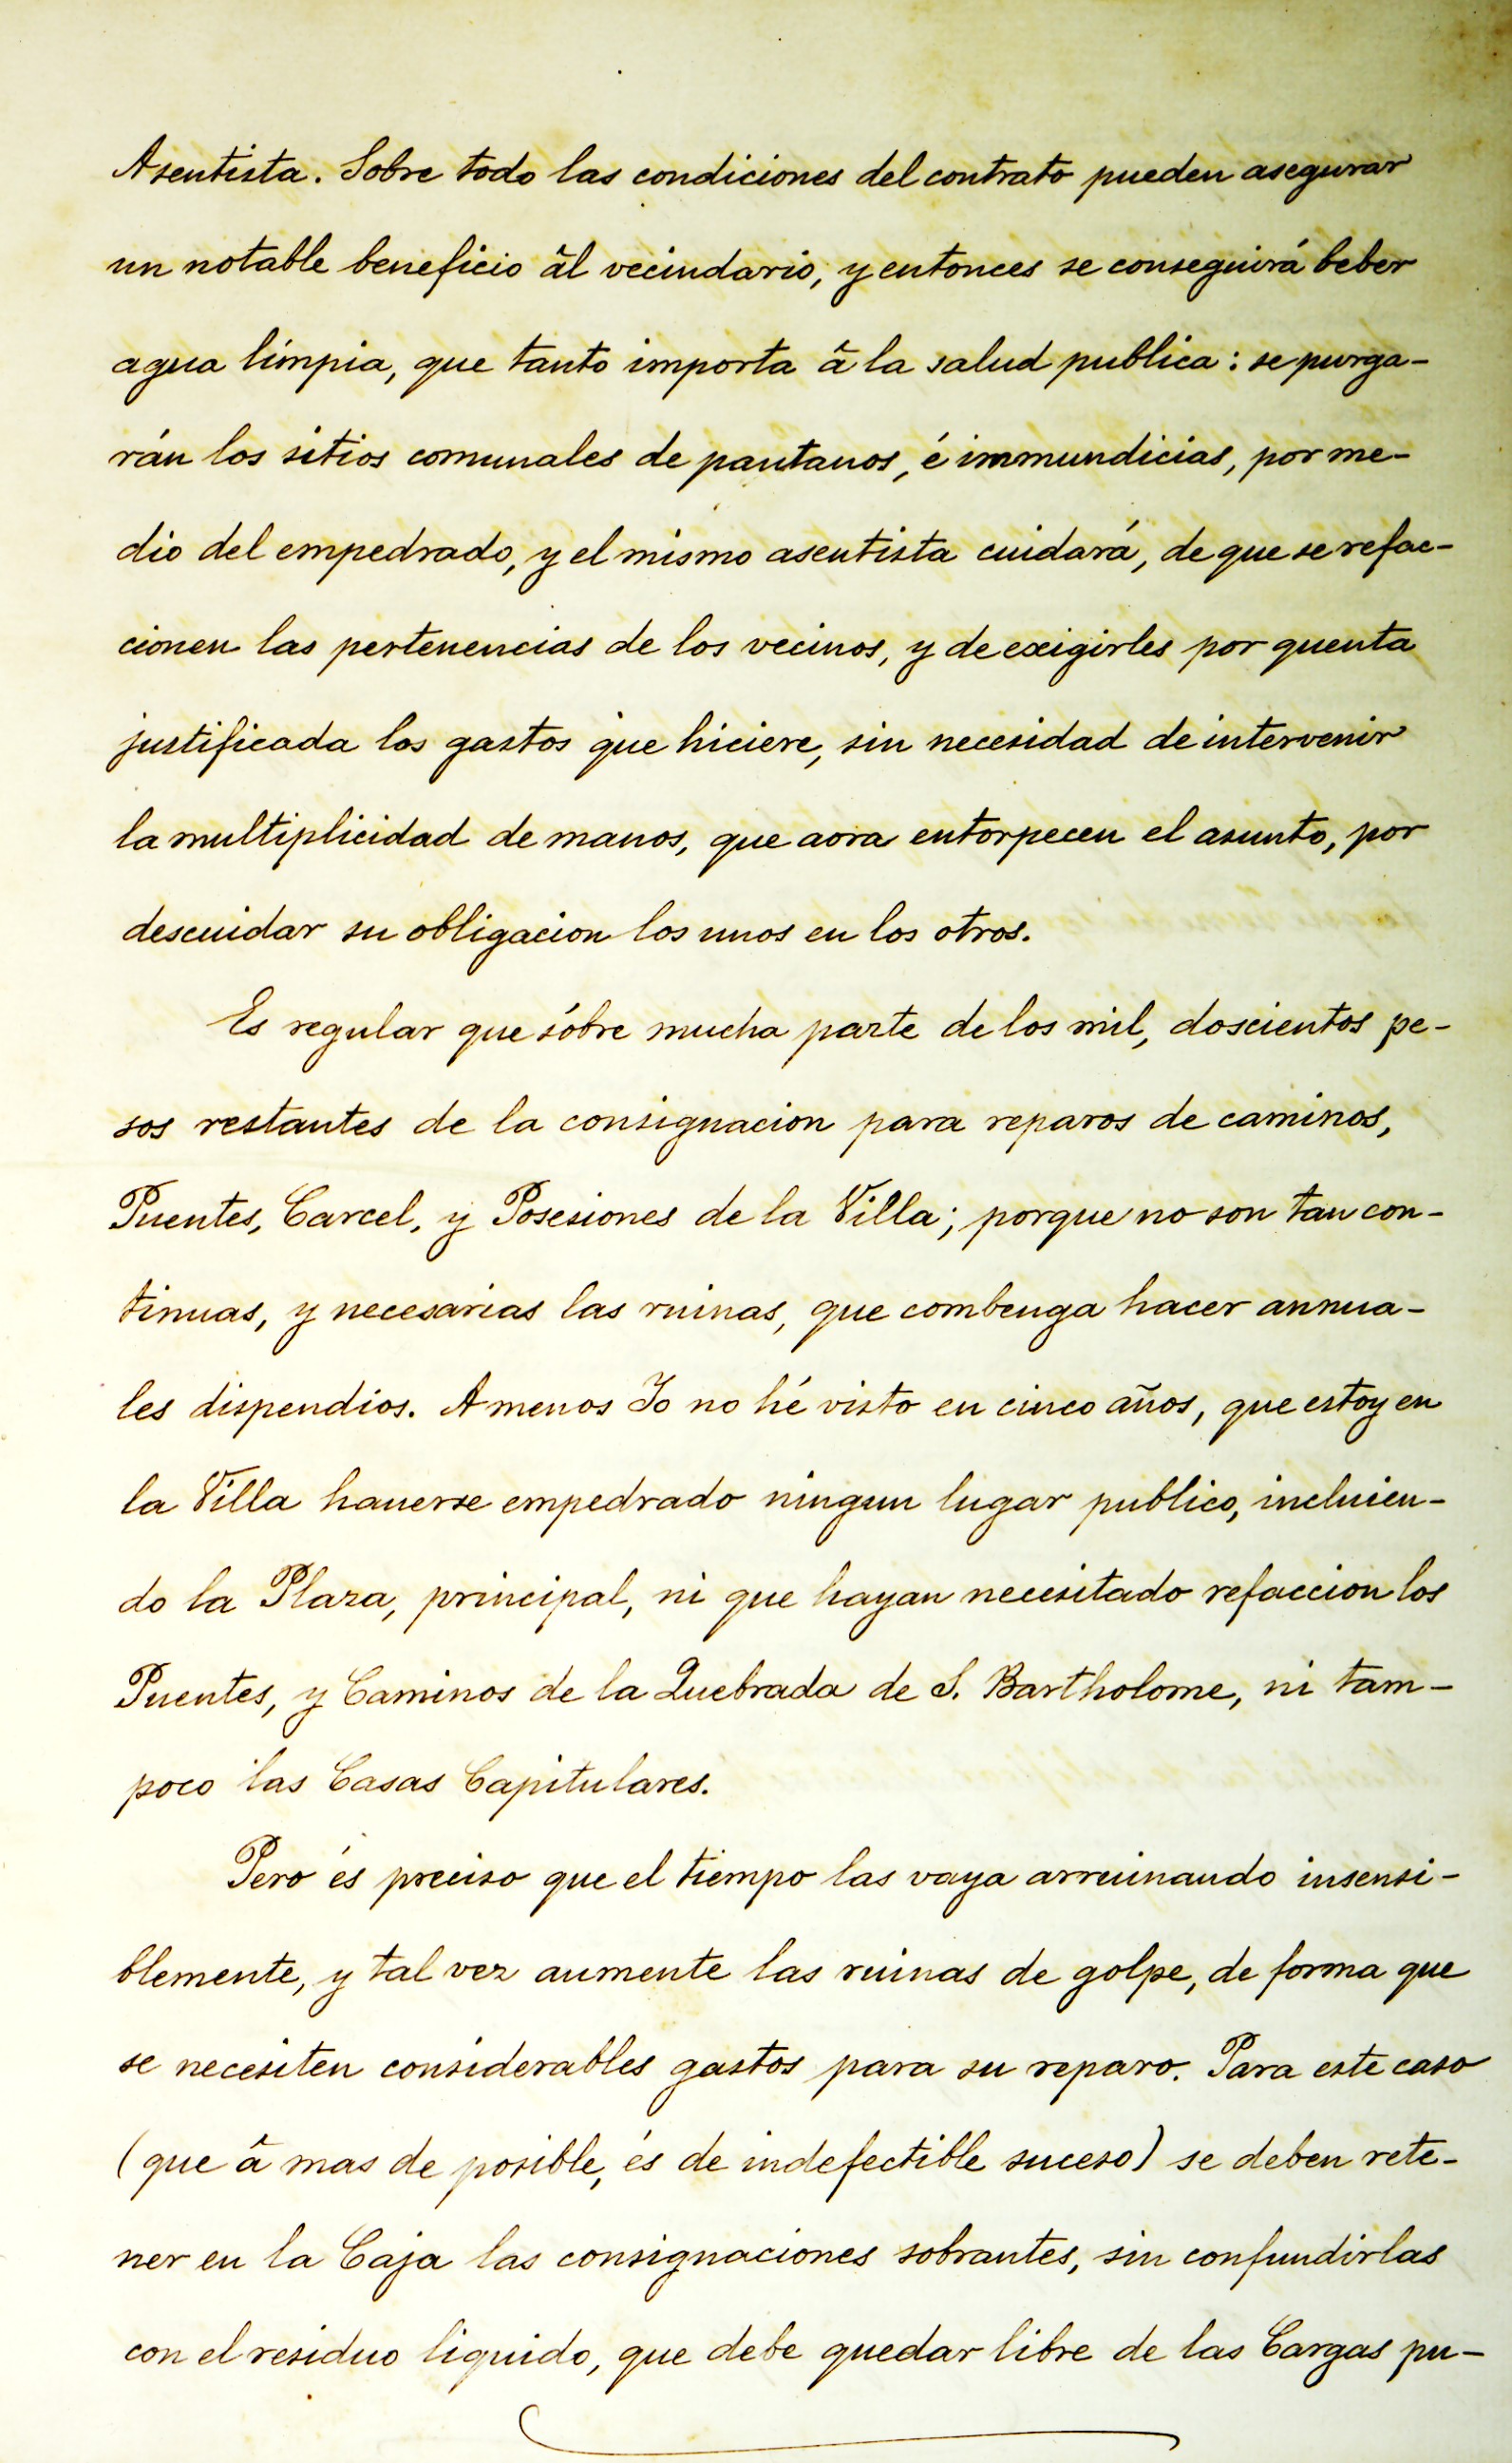 Asentista. Sobre todo las condiciones del contrato pueden asegurar
un notable beneficio âl vecindario, y entonces se conseguirá beber
agua límpia, que tanto importa â la salud publica: se purga-
rán los sitios comunales de pantanos, é immundicias, por me-
dio del empedrado, y el mismo asentista cuidará, de que se refac-
cionen las pertenencias de los vecinos, y de exigirles por quenta
justificada los gastos que hiciere, sin necesidad de intervenir
la multiplicidad de manos, que aora entorpecen el asunto, por
descuidar su obligacion los unos en los otros.
Es regular que sóbre mucha parte de los mil, doscientos pe-
sos restantes de la consignacion para reparos de caminos,
Puentes, Carcel, y Posesiones de la Villa; porque no son tan con-
tinuas, y necesarias las ruinas, que combenga hacer annua-
les dispendios. A menos Yo no hé visto en cinco años, que estoy en
la Villa hauerse empedrado ningun lugar publico, incluien-
do la Plaza, principal, ni que hayan necesitado refaccion los
Puentes, y Caminos de la Quebrada de S. Bartholome, ni tam-
poco las Casas Capitulares.
Pero és preciso que el tiempo las vaya arreuinando insensi-
blemente, y tal vez aumente las ruinas de golpe, de forma que
se necesiten considerables gastos para su reparo. Para este caso
(que â mas de posible, és de indefectible suceso) se deben rete-
ner en la Caja las consignaciones sobrantes, sin confundirlas
con el residuo liquido, que debe quedar libre de las Cargas pu-